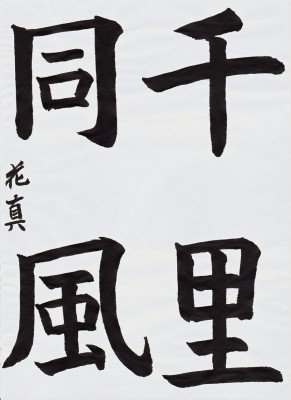 千里
同風
花真